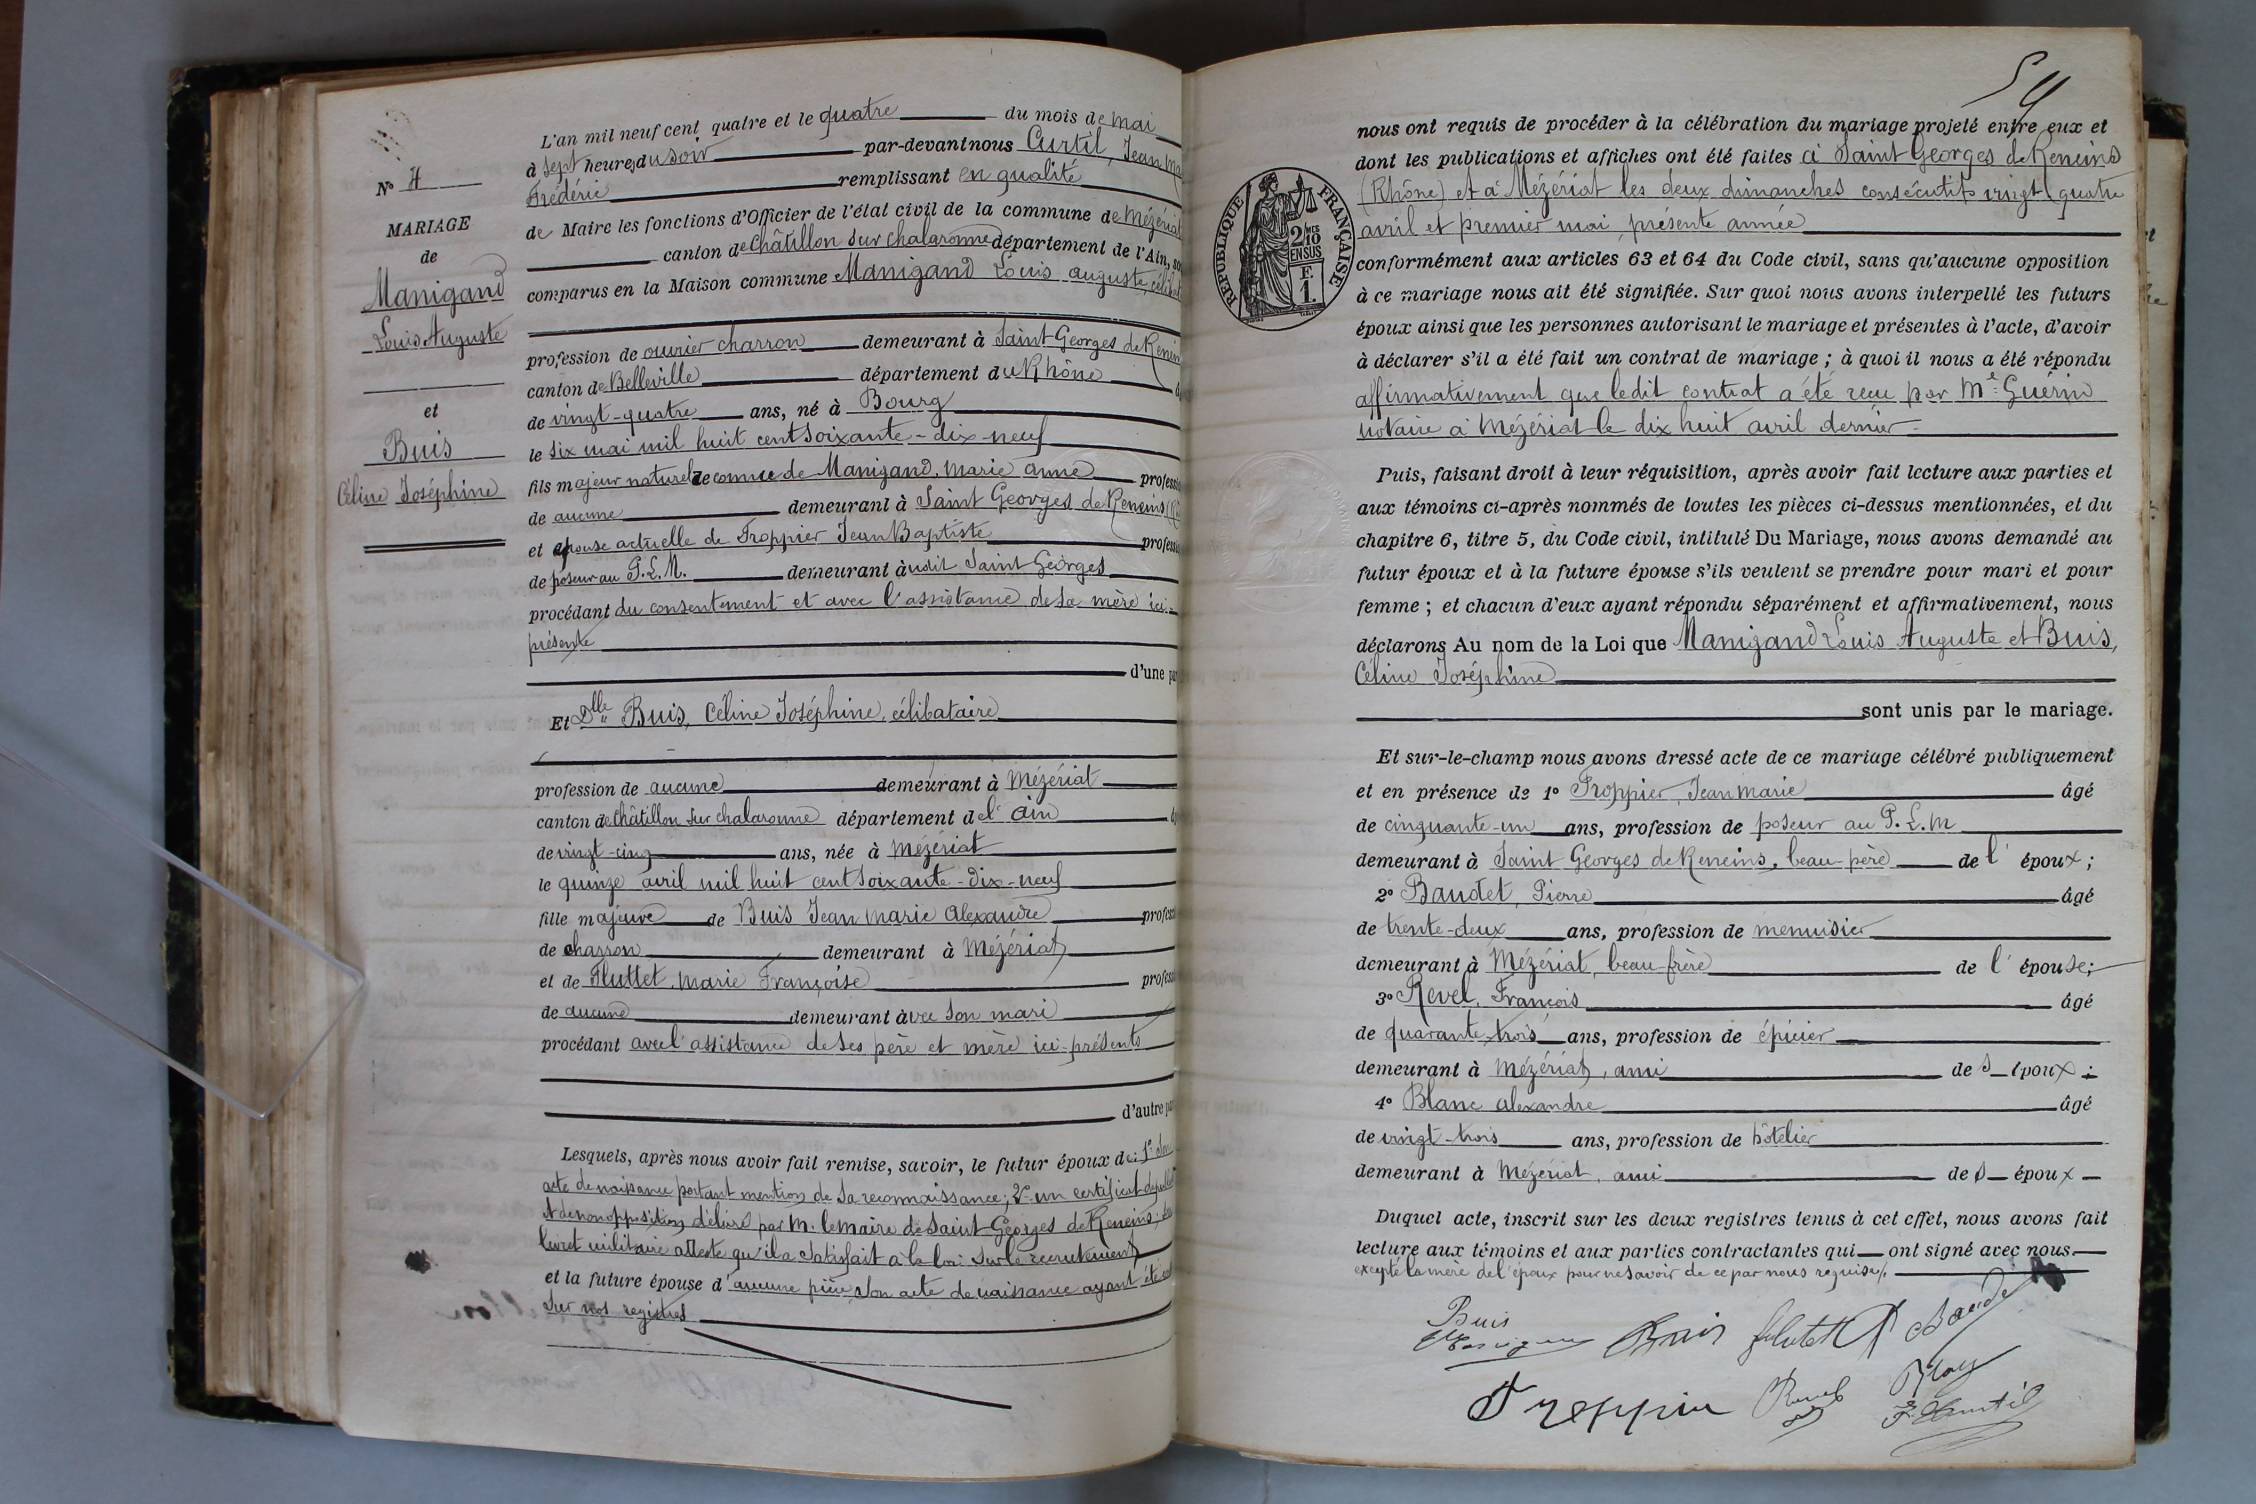 N° 4
MARIAGE
de
Manigand
Louis Auguste
et
Buis
Céline Joséphine
L'an mil neuf cent quatre et le quatre du mois de mai
à sept heures du soir par-devant nous Curtil, Jean Ma
Frédéric remplissant en qualité
de Maire les fonctions d'Officier de l'état civil de la commune de Mézériat
canton de Châtillon sur Chalaronne département de l'Ain, so
comparus en la Maison commune Manigand Louis auguste, célibat
profession de ouvrier charron demeurant à Saint Georges de Renein
canton de Belleville département du Rhône
de vingt-quatre ans, né à Bourg
le six mai mil huit cent soixante-dix-neuf
fils majeur naturel reconnu de Manigand, marie anne profess
de aucune demeurant à Saint Georges de Reneins
et épouse actuelle de Troppier Jean Baptiste profess
de poseur au P.L.M. demeurant audit Saint Georges
procédant du consentement et avec l'assistance de sa mère ici-
présente
d'une par
Et Dlle Buis, Céline Joséphine, célibataire
profession de aucune demeurant à Mézériat
canton de Châtillon sur Chalaronne département de l'ain
de vingt-cinq ans, née à Mézériat
le quinze avril mil huit cent soixante-dix-neuf
fille majeure de Buis Jean Marie Alexandre profess
de charron demeurant à Mézériat
et de Fluttet, marie Françoise profess
de aucune demeurant avec son mari
procédant avec l'assistance de ses père et mère ici-présents
d'autre par
Lesquels, après nous avoir fait remise, savoir, le futur époux de: 1° son
acte de naissance portant mention de sa reconnaissance; 2° un certificat de publicat
et de non opposition délivré par M. le maire de Saint-Georges de Reneins; son
livret militaire atteste qu'il a satisfait à la loi sur le recrutement
et la future épouse d'aucune pièce, son acte de naissance ayant été
sur nos registres
54
RÉPUBLIQUE FRANÇAISE
2/10 MES
EN SUS
F.
1.
nous ont requis de procéder à la célébration du mariage projeté entre eux et
dont les publications et affiches ont été faites à Saint Georges de Reneins
(Rhône) et à Mézériat les deux dimanches consécutifs vingt quatre
avril et premier mai, présente année
conformément aux articles 63 et 64 du Code civil, sans qu'aucune opposition
à ce mariage nous ait été signifiée. Sur quoi nous avons interpellé les futurs
époux ainsi que les personnes autorisant le mariage et présentes à l'acte, d'avoir
à déclarer s'il a été fait un contrat de mariage ; à quoi il nous a été répondu
affirmativement que ledit contrat a été reçu par Me Guérin
notaire à Mézériat le dix huit avril dernier -
Puis, faisant droit à leur réquisition, après avoir fait lecture aux parties et
aux témoins ci-après nommés de toutes les pièces ci-dessus mentionnées, et du
chapitre 6, titre 5, du Code civil, intitulé Du Mariage, nous avons demandé au
futur époux et à la future épouse s'ils veulent se prendre pour mari et pour
femme ; et chacun d'eux ayant répondu séparément et affirmativement, nous
déclarons Au nom de la Loi que Manigand Louis Auguste et Buis,
Céline Joséphine
sont unis par le mariage.
Et sur-le-champ nous avons dressé acte de ce mariage célébré publiquement
et en présence de 1° Troppier, Jean marie âgé
de cinquante-un ans, profession de poseur au P.L.M
demeurant à Saint Georges de Reneins, beau-père de l'époux ;
2° Baudet, Pierre âgé
de trente-deux ans, profession de menuisier
demeurant à Mézériat, beau-frère de l'épouse;
3° Revel, François âgé
de quarante-trois ans, profession de épicier
demeurant à Mézériat, ami de s époux ;
4° Blanc alexandre âgé
de vingt-trois ans, profession de hôtelier
demeurant à Mézériat, ami de s époux
Duquel acte, inscrit sur les deux registres tenus à cet effet, nous avons fait
lecture aux témoins et aux parties contractantes qui ont signé avec nous.
excepté la mère de l'époux pour ne savoir de ce par nous requise
Buis
Buis Flutet Baudet
Troppier Revel
F. Curtil